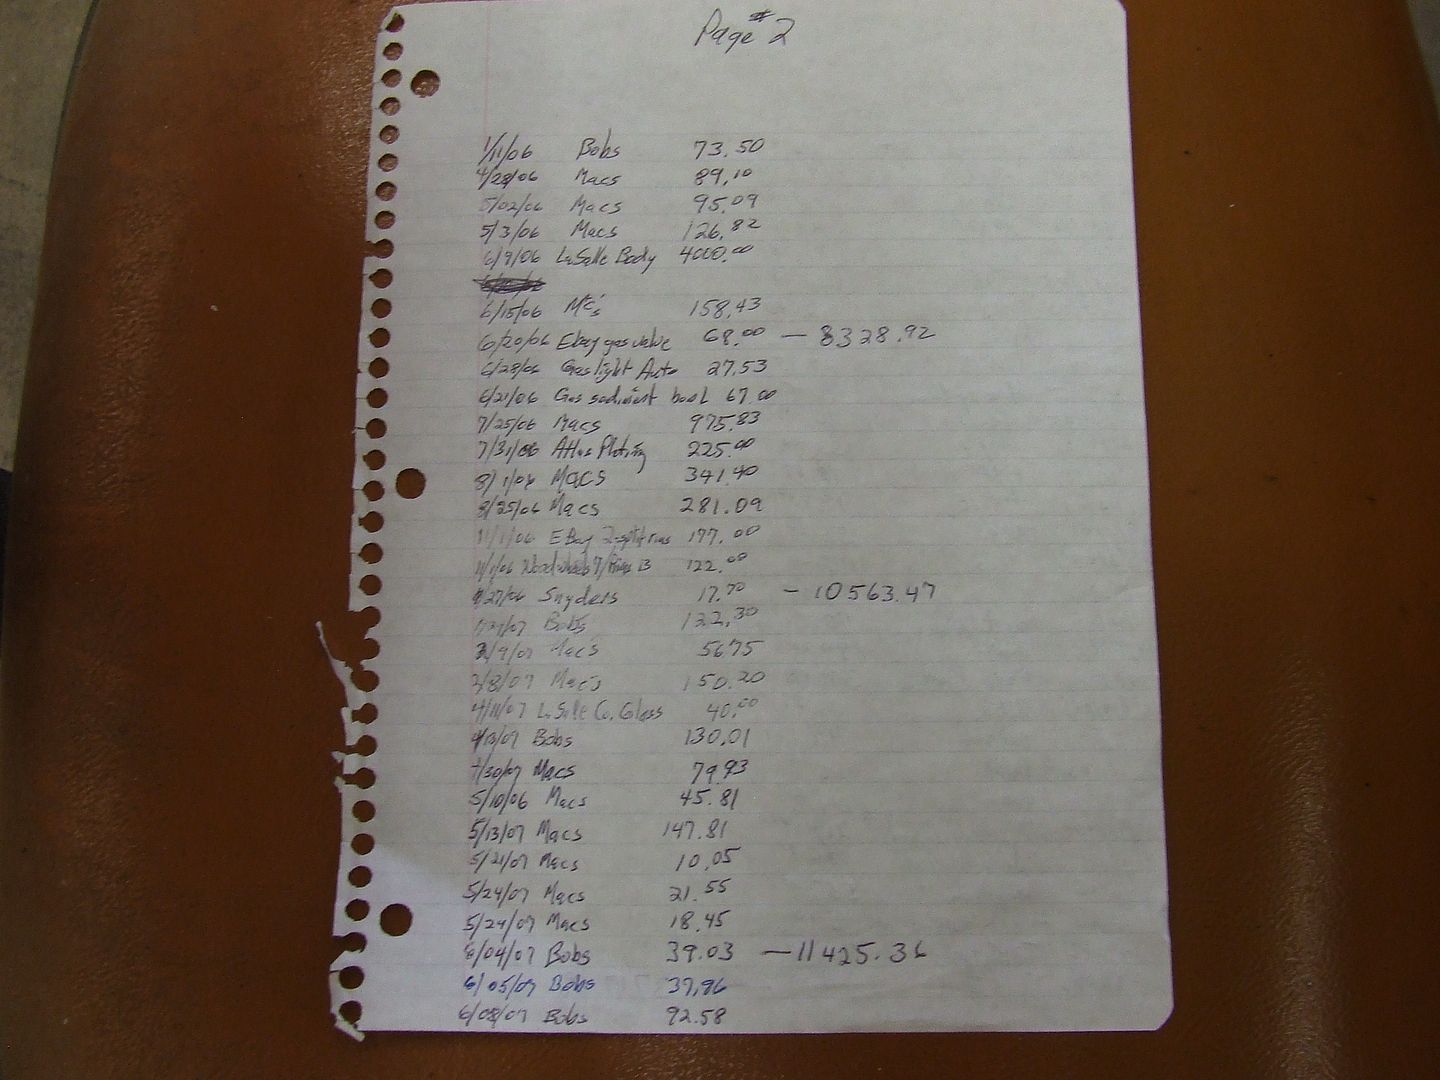 Page #2
1/11/06 Bobs 73.50
4/28/06 Macs 89.10
5/02/06 Macs 95.09
5/3/06 Macs 126.82
6/9/06 LaSalle Body 4000.00
6/15/06 Mc's 158.43
6/20/06 Ebay gas valve 68.00 — 8328.92
6/28/06 Gaslight Auto 27.53
6/21/06 Gas sediment bowl 67.00
7/25/06 Macs 975.83
7/31/06 Atlas Plating 225.00
8/1/06 Macs 341.40
8/25/06 Macs 281.09
11/1/06 EBay 2-split rims 177.00
11/1/06 122.00
27/06 Snyders 17.70 — 10563.47
07 Bobs 122.30
/9/07 Mac's 56.75
2/8/07 Mac's 150.20
4/11/07 LaSalle Co. Glass 40.00
4/13/07 Bobs 130.01
4/30/07 Macs 79.93
5/10/06 Macs 45.81
5/13/07 Macs 147.81
5/21/07 Macs 10.05
5/24/07 Macs 21.55
5/24/07 Macs 18.45
6/04/07 Bobs 39.03 — 11425.36
6/05/07 Bobs 37.96
6/08/07 Bobs 92.58